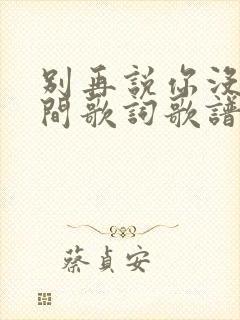 別再說你沒
間歌詞歌譜
蔡貞安